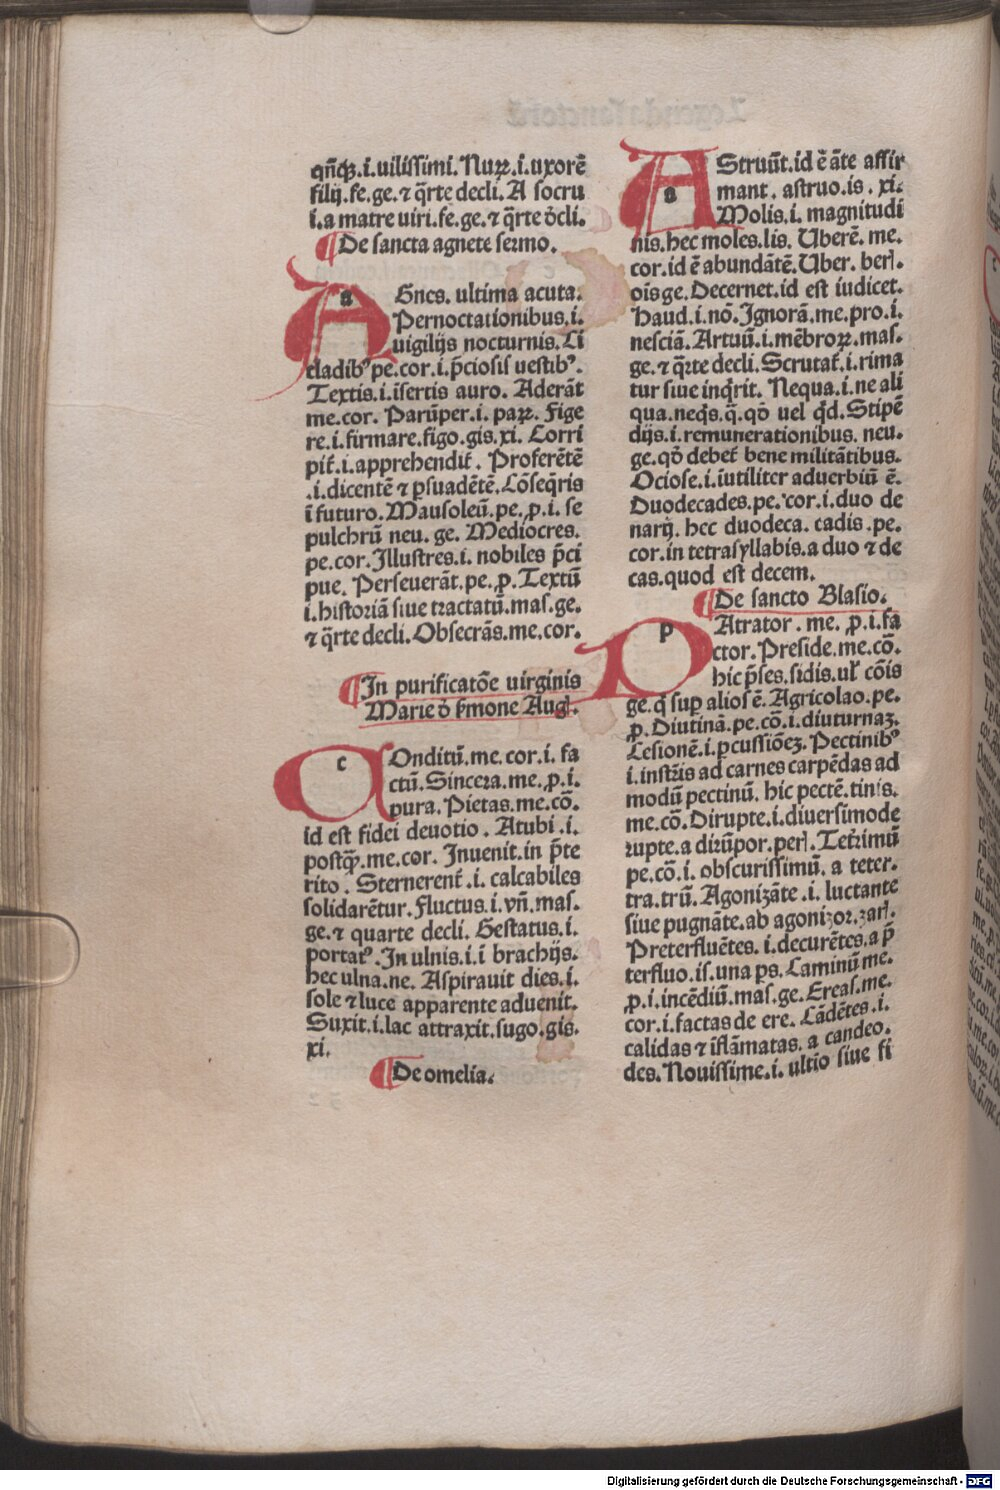 qñcȝ.i.uilissimi.Nuꝝ.i.uxorē
filij.fe.ge.⁊ q̄rte decli. A socru
i.a matre uiri.fe.ge.⁊ q̄rte d̄cli.
¶De sancta agnete sermo.
AGnes. ultima acuta.
Pernoctationibus.i.
uigilijs nocturnis. Ci
cladibꝰ pe.cor.i.p̄ciosis uestibꝰ.
Textis.i.īsertis auro. Aderāt
me.cor. Parūper.i. paꝝ. Fige
re.i.firmare.figo.gis.xi. Corri
pit̄.i.apprehendit̄. Proferētē
.i.dicentē ⁊ ꝑsuadētē. Cōseq̄ris
ī futuro. Mausoleū.pe.ꝓ.i. se
pulchrū neu. ge. Mediocres.
pe.cor. Illustres.i. nobiles p̄ci
pue. Perseuerāt.pe.ꝓ. Textū
i.historiā siue tractatū.mas.ge.
⁊ q̄rte decli. Obsecrās.me.cor.
¶In purificatōe uirginis
Marie d̄ s̄mone Auḡ.
cOnditū.me.cor.i. fa
ctū. Sincera.me.ꝓ.i.
pura. Pietas.me.cō.
id est fidei deuotio. Atubi.i.
postq̄ȝ.me.cor. Inuenit.in p̄te
rito. Sternerent̄.i. calcabiles
solidarētur. Fluctus.i.vñ.mas.
ge.⁊ quarte decli. Gestatus.i.
portatꝰ. In ulnis.i.ī brachijs.
hec ulna.ne. Aspirauit dies.i.
sole ⁊ luce apparente aduenit.
Suxit.i.lac attraxit.sugo.gis.
xi.
¶De omelia.
AStruūt.id ē āte affir
mant. astruo.is.xi.
Molis.i. magnitudi
nis.hec moles.lis. Uberē. me.
cor.id ē abundātē. Uber. beri.
oīs ge. Decernet.id est iudicet.
Haud.i.nō. Ignorā.me.pro.i.
nesciā. Artuū.i.mēbroꝝ.mas.
ge.⁊ q̄rte decli. Scrutat̄.i.rima
tur siue inq̄rit. Nequa.i.ne ali
qua.neq̄s.q̄.qd̄ uel q̄d. Stipē
dijs.i.remunerationibus. neu.
ge.qd̄ debet̄ bene militātibus.
Ociose.i.īutiliter aduerbiū ē.
Duodecades.pe.cor.i.duo de
narij. hec duodeca. cadis.pe.
cor.in tetrasyllabis.a duo ⁊ de
cas.quod est decem.
¶De sancto Blasio.
pAtrator. me. ꝓ.i.fa
ctor. Preside.me.cō.
hic p̄ses.sidis.ul̄ cōis
ge.q̄ suꝑ alios ē. Agricolao.pe.
ꝓ. Diutinā.pe.cō.i.diuturnaȝ.
Lesionē.i.ꝑcussiōeȝ. Pectinibꝰ
i.instr̄is ad carnes carpēdas ad
modū pectinū. hic pectē.tinis.
me.cō. Dirupte.i.diuersimode
rupte.a dirūpor.peri. Tet̄rimū
pe.cō.i. obscurissimū. a teter.
tra.trū. Agonizāte.i. luctante
siue pugnāte.ab agonizor.zari.
Preterfluētes.i.decurētes.a p̄
terfluo.is.una ps. Caminū me.
ꝓ.i.incēdiū.mas.ge. Ereas.me.
cor.i.factas de ere. Cādētes.i.
calidas ⁊ īflāmatas. a candeo.
des. Nouissime.i. ultio siue fi
Digitalisierung gefördert durch die Deutsche Forschungsgemeinschaft - DFG